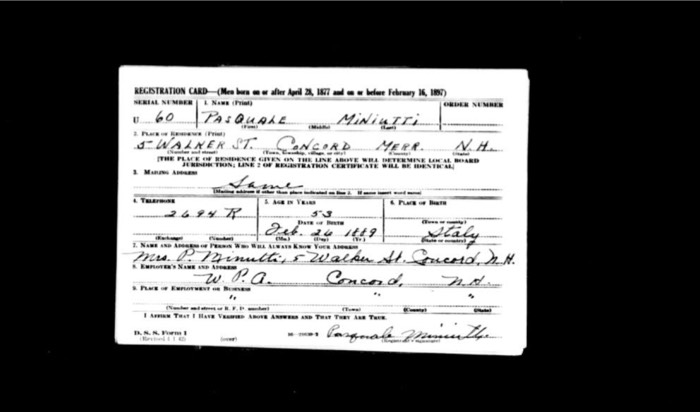 REGISTRATION CARD—(Men born on or after April 28, 1877 and on or before February 16, 1897)
SERIAL NUMBER 1. NAME (Print) ORDER NUMBER
U 60 PASQUALE MINIUTTI
(First) (Middle) (Last)
2. PLACE OF RESIDENCE (Print)
5 WALKER ST. CONCORD MERR. N.H.
(Number and street) (Town, township, village, or city) (County) (State)
[THE PLACE OF RESIDENCE GIVEN ON THE LINE ABOVE WILL DETERMINE LOCAL BOARD
JURISDICTION; LINE 2 OF REGISTRATION CERTIFICATE WILL BE IDENTICAL]
3. MAILING ADDRESS
Same
[Mailing address if other than place indicated on line 2. If same insert word same]
4. TELEPHONE 5. AGE IN YEARS 6. PLACE OF BIRTH
2694 R 53
DATE OF BIRTH (Town or county)
Feb. 26 1889 Italy
(Exchange) (Number) (Mo.) (Day) (Yr.) (State or country)
7. NAME AND ADDRESS OF PERSON WHO WILL ALWAYS KNOW YOUR ADDRESS
Mrs. P. Miniutti, 5 Walker St. Concord, N.H.
8. EMPLOYER'S NAME AND ADDRESS
W. P. A. Concord, N.H.
9. PLACE OF EMPLOYMENT OR BUSINESS
" " "
(Number and street or R. F. D. number) (Town) (County) (State)
I AFFIRM THAT I HAVE VERIFIED ABOVE ANSWERS AND THAT THEY ARE TRUE.
D. S. S. Form 1 Pasquale Miniutti
(over)